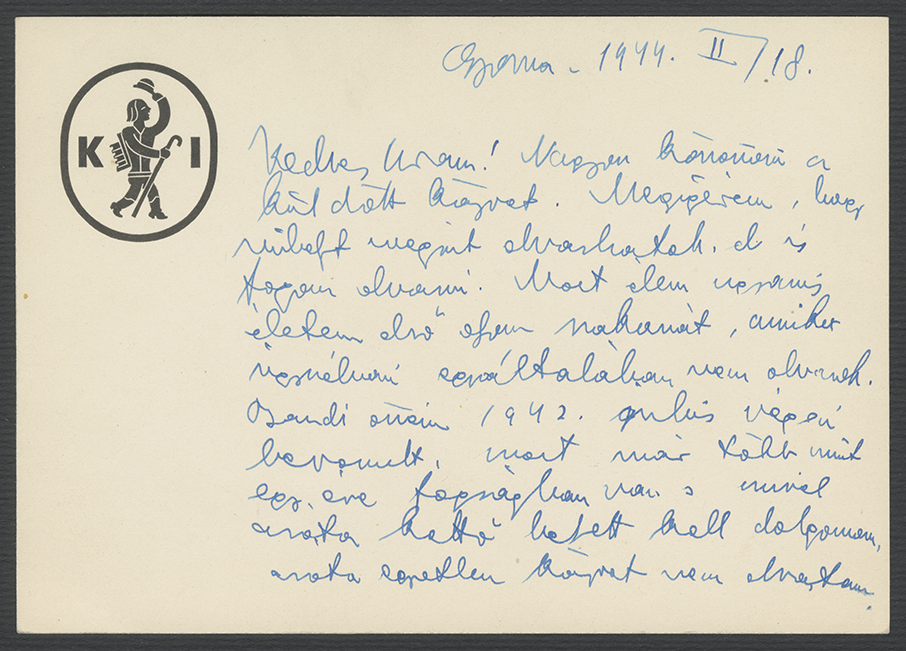 Gyoma, 1944. II/18.
K I
Kedves Uram! Nagyon köszönöm a
küldött könyvet. Megigérem, hogy
mihelyt megint olvashatok, el is
fogom olvasni. Most élem ugyanis
életem első olyan szakaszát, amikor
úgyszólván egyáltalában nem olvasok.
Bandi öcsém 1942. julius végén
bevonult, most már több mint
egy éve fogságban van s mivel
azóta kettő helyett kell dolgoznom,
azóta egyetlen könyvet nem olvastam.